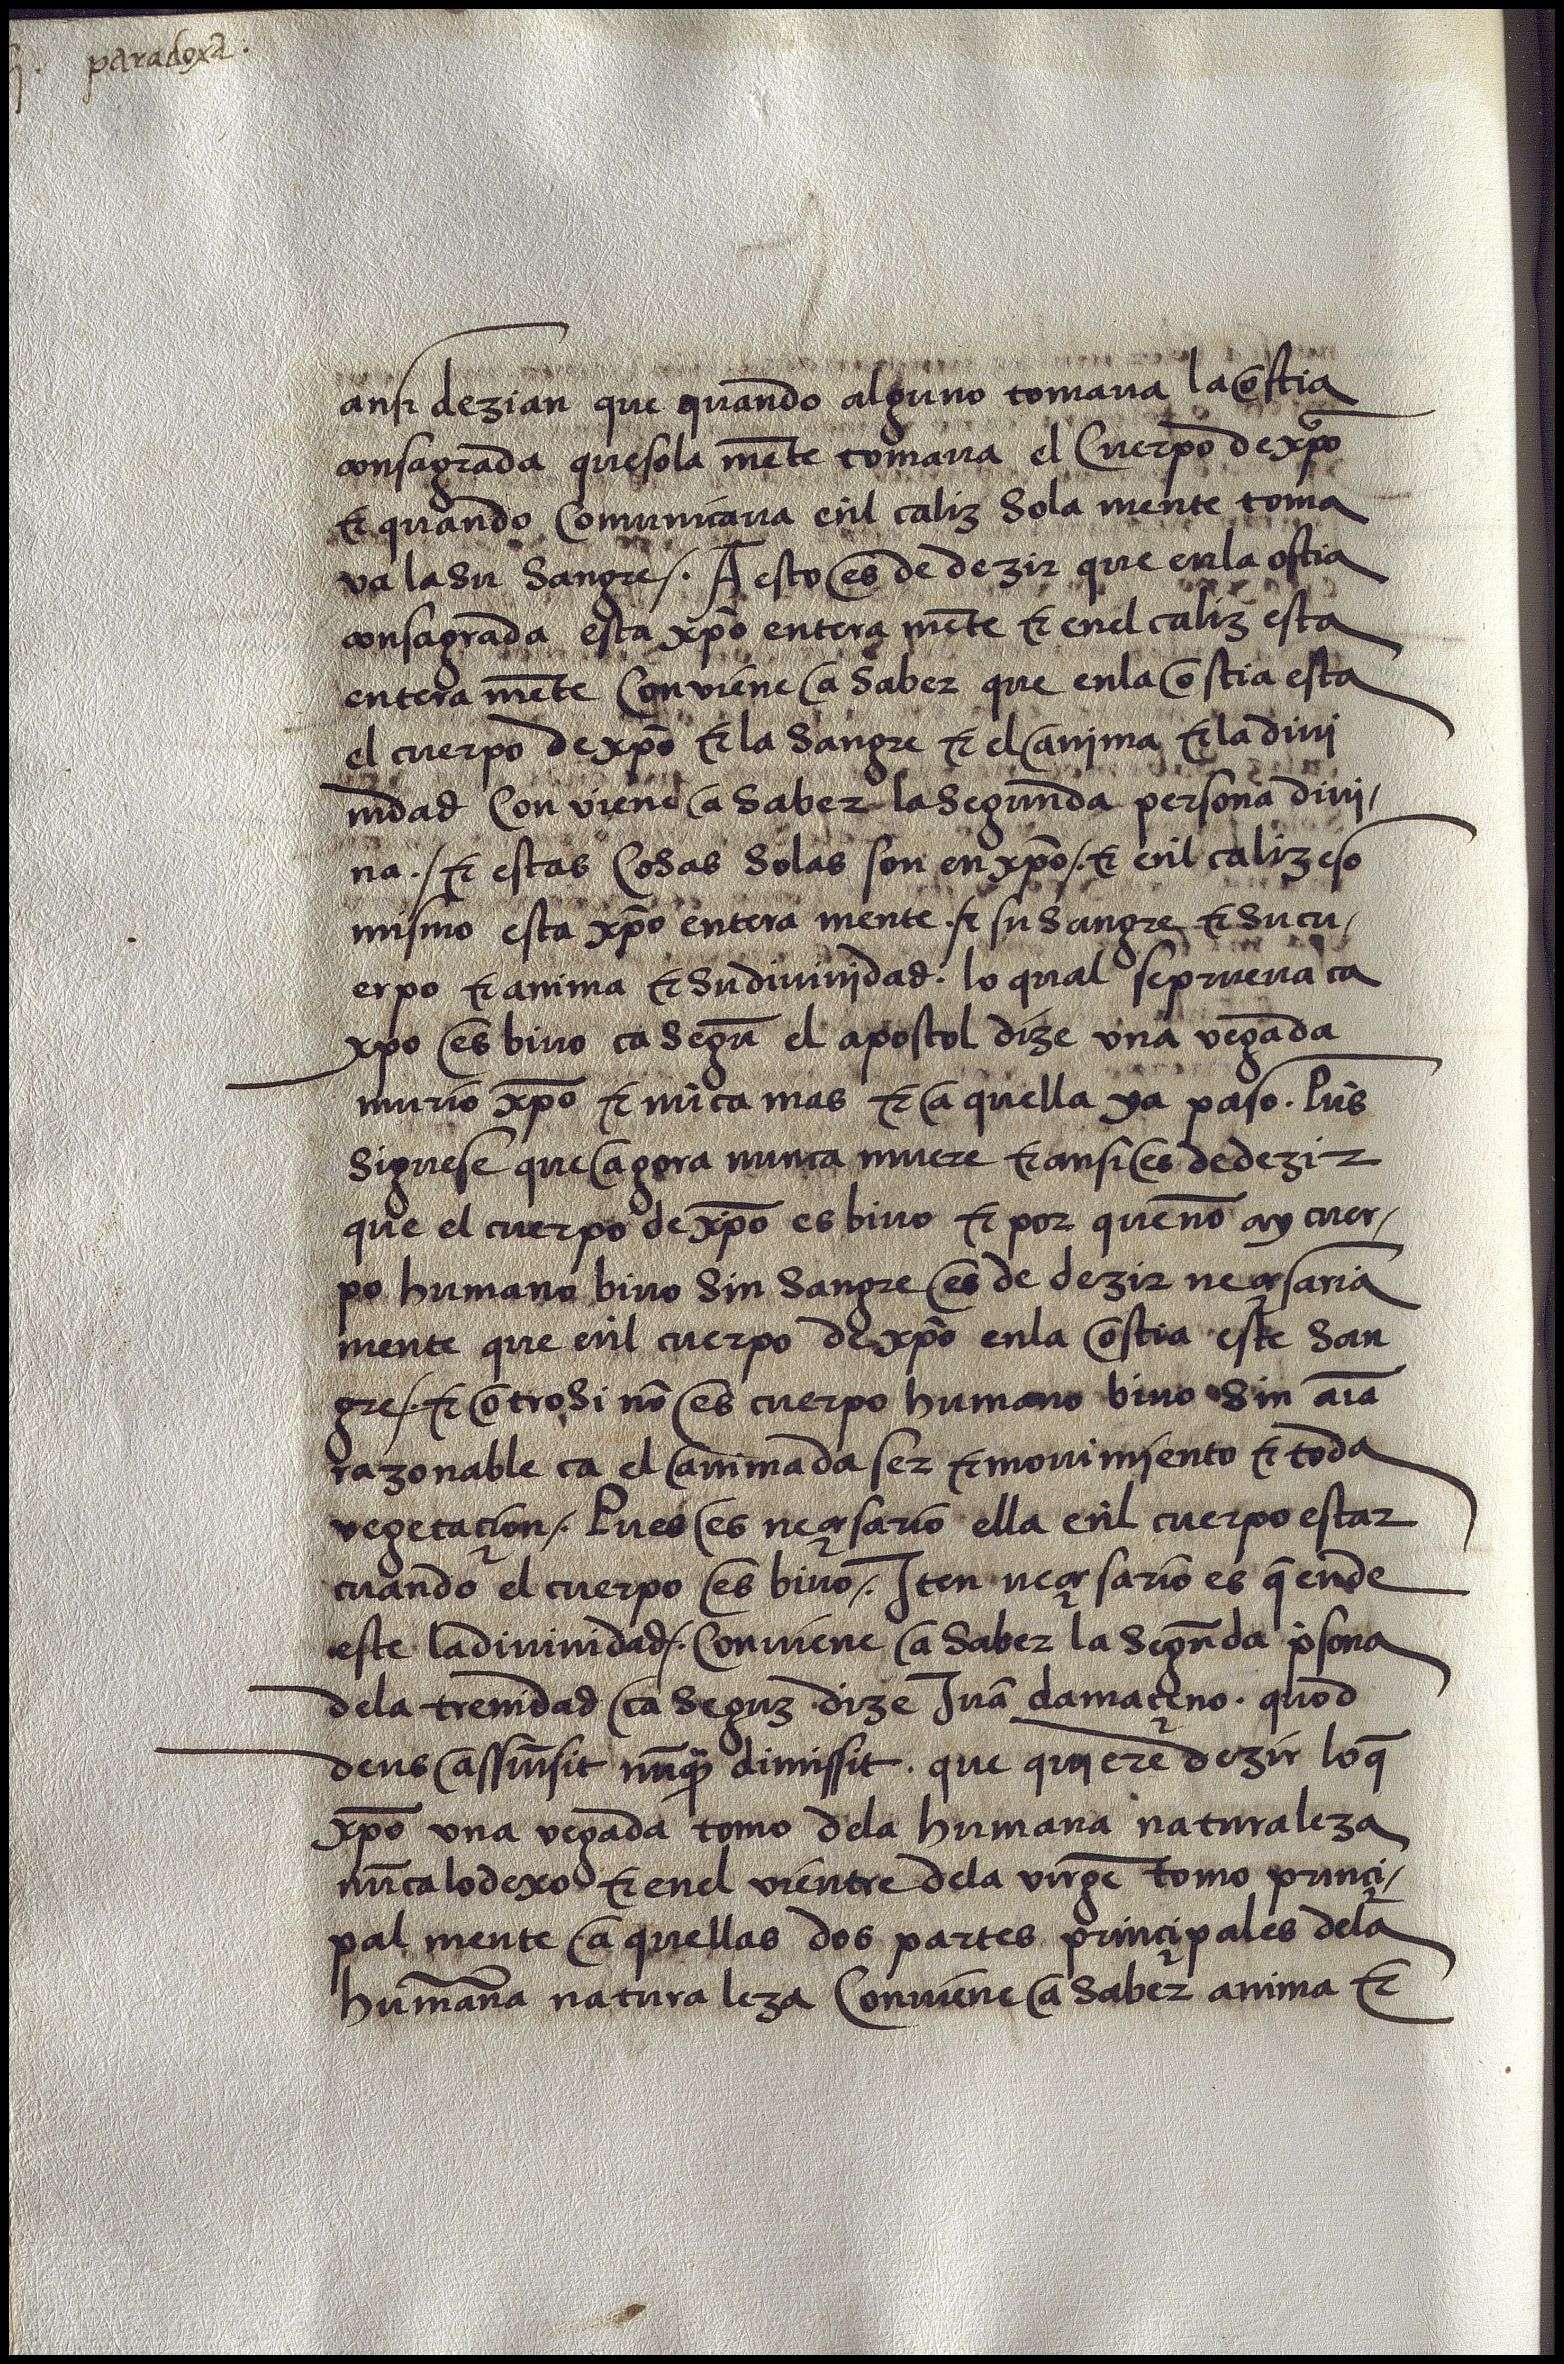 paradoxa:
ansi dezian que quando alguno tomaua la ostia
consagrada que sola mẽte tomaua el Cuerpo de xp̃o
⁊ quando Comunicaua enl caliz Sola mente toma
va la Su Sangre/. A esto es de dezir que enla ostia
consagrada esta xp̃o entera mẽte ⁊ enel caliz esta
entera mẽte Con viene a Saber que enla ostia esta
el cuerpo de xp̃o ⁊ la Sangre ⁊ el anima ⁊ la diui
nidad Con viene a Saber la Segunda persona diui/
na./ ⁊ estas Cosas Solas son en xp̃o/. ⁊ enl caliz eso
mismo esta xp̃o entera mente. ⁊ su Sangre ⁊ Su cu/
erpo ⁊ anima ⁊ Su diuinjdad. lo qual se prueua ca
xpo es biuo ca Segũ el apostol dize vna vegada
murio xp̃o ⁊ nũca mas ⁊ a quella ya paso. Pus
Siguese que agora nunca muere ⁊ ansi es de dezir
que el cuerpo de xp̃o es biuo ⁊ por que no ay cuer/
po humano biuo Sin Sangre es de dezir neçesaria
mente que enl cuerpo de xp̃o enla ostia este San
gre/. ⁊ otro Si nõ es cuerpo humano biuo Sin aĩa
razonable ca el anima da ser ⁊ mouimjento ⁊ toda
vegetaçion/. Pues es neçesario ella enl cuerpo estar
cuando el cuerpo es biuo/. Iten neçesario es q̃ ende
este la diuinidad/. Conuiene a Saber la Segũnda p̱sona
dela trenidad ca Seguz dize Iuã damaçeno. quod
deus assũnsit nũq̃ dimissit. que qujere dezir lo q̃
xp̃o vna vegada tomo dela humana naturaleza
nũca lo dexo ⁊ enel vientre dela virgẽ tomo prinçi/
pal mente a quellas dos partes prinçipales dela
humãna natura leza Conuiene a Saber anima ⁊